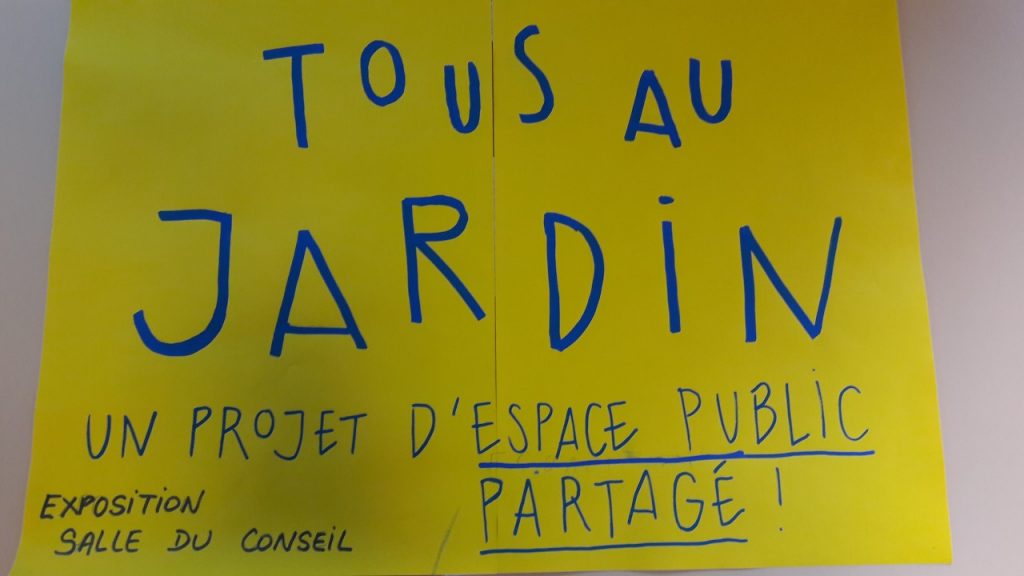 TOUS AU
JARDiN
UN PROJET D'ESPACE PUBLiC
PARTAGÉ !
EXPOSiTiON
SALLE DU CONSEiL